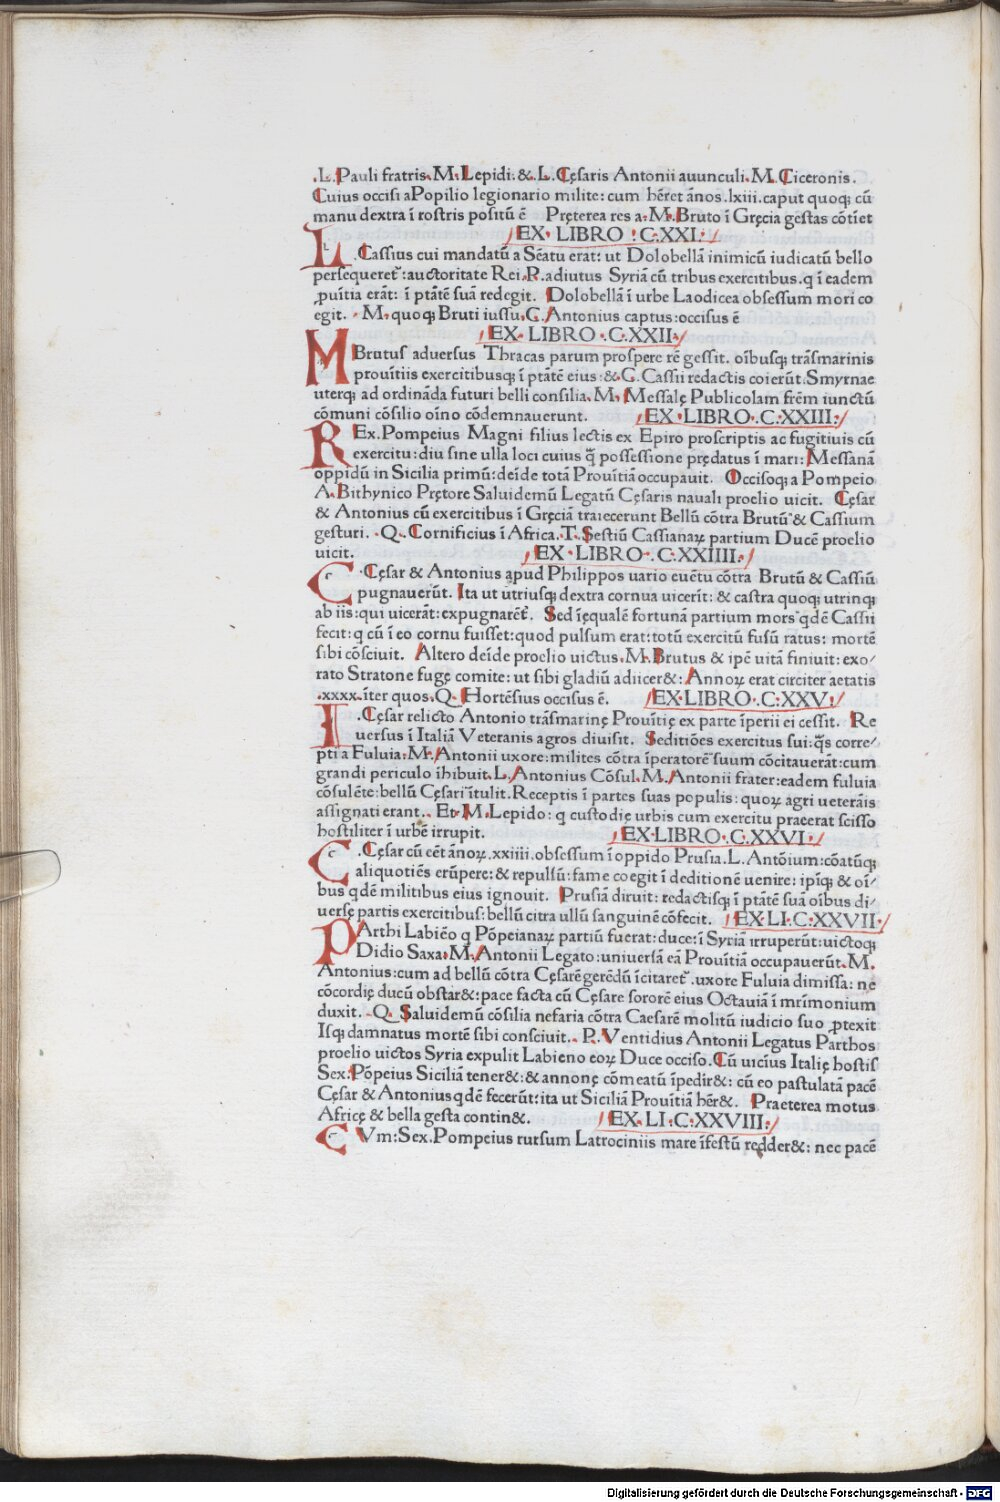 .L. Pauli fratris. M. Lepidi. &. L. Cęsaris Antonii auunculi. M. Ciceronis.
Cuius occisi a Popilio legionario milite: cum hēret ānos .lxiii. caput quoq; cū
manu dextra ī rostris positū ē Pręterea res a. M. Bruto ī Gręcia gestas cōtīet
EX. LIBRO. C.XXI.
L .Cassius cui mandatū a Sēatu erat: ut Dolobellā inimicū iudicatū bello
persequeret̄: auctoritate Rei. P. adiutus Syriā cū tribus exercitibus. q ī eadem
ꝓuītia erāt: ī ptāte suā redegit. Dolobellā ī urbe Laodicea obsessum mori co
egit. M. quoq; Bruti iussu. G. Antonius captus: occisus ē
EX. LIBRO. C.XXII.
M Brutus aduersus Thracas parum prospere rē gessit. oībusq; trāsmarinis
prouītiis exercitibusq; ī ptāte eius: &. G. Cassii redactis coierūt. Smyrnae
uterq; ad ordināda futuri belli consilia. M. Messalę Publicolam frēm iunctū
cōmuni cōsilio oīno cōdemnauerunt. EX. LIBRO. C.XXIII.
R Ex. Pompeius Magni filius lectis ex Epiro proscriptis ac fugitiuis cū
exercitu: diu sine ulla loci cuius q̄ possessione prędatus ī mari: Messanā
oppidū in Sicilia primū: deīde totā Prouītiā occupauit. Occisoq; a Pompeio
A. Bithynico Prętore Saluidemū Legatū Cęsaris nauali proelio uicit. Cęsar
& Antonius cū exercitibus ī Gręciā traiecerunt Bellū cōtra Brutū & Cassium
gesturi. Q. Cornificius ī Africa. T. Sestiū Cassianaꝝ partium Ducē proelio
uicit. EX. LIBRO. C.XXIIII.
C .Cęsar & Antonius apud Philippos uario euētu cōtra Brutū & Cassiū
pugnauerūt. Ita ut utriusq; dextra cornua uicerīt: & castra quoq; utrinq;
ab iis: qui uicerāt: expugnarēt̄. Sed īęqualē fortunā partium mors qdē Cassii
fecit: q cū ī eo cornu fuisset: quod pulsum erat: totū exercitū fusū ratus: mortē
sibi cōsciuit. Altero deīde proelio uictus. M. Brutus & ipē uitā finiuit: exo/
rato Stratone fugę comite: ut sibi gladiū adiicer&: Annoꝝ erat circiter aetatis
.xxxx. īter quos. Q. Hortēsius occisus ē. EX. LIBRO. C.XXV.
I .Cęsar relicto Antonio trāsmarinę Prouītię ex parte īperii ei cessit. Re
uersus ī Italiā Veteranis agros diuisit. Seditiōes exercitus sui: q̄s corre/
pti a Fuluia. M. Antonii uxore: milites cōtra īperatorē suum cōcitauerāt: cum
grandi periculo īhibuit. L. Antonius Cōsul. M. Antonii frater: eadem fuluia
cōsulēte: bellū Cęsari ītulit. Receptis ī partes suas populis: quoꝝ agri ueterāis
assignati erant. Et. M. Lepido: q custodię urbis cum exercitu praeerat scisso
hostiliter ī urbē irrupit. EX. LIBRO. C.XXVI.
C .Cęsar cū eēt ānoꝝ .xxiiii. obsessum ī oppido Prusia. L. Antōium: cōatūq;
aliquotiēs erūpere: & repulsū: fame coegit ī deditionē uenire: ipīq; & oī/
bus qdē militibus eius ignouit. Prusiā diruit: redactisq; ī ptātē suā oībus di/
uersę partis exercitibus: bellū citra ullū sanguinē cōfecit. EX. LI. C.XXVII.
P Arthi Labiēo q Pōpeianaꝝ partiū fuerat: duce: ī Syriā irruperūt: uictoq;
Didio Saxa. M. Antonii Legato: uniuersā eā Prouītiā occupauerūt. M.
Antonius: cum ad bellū cōtra Cęsarē gerēdū īcitaret̄. uxore Fuluia dimissa: ne
cōcordię ducū obstar&: pace facta cū Cęsare sororē eius Octauiā ī mr̄imonium
duxit. Q. Saluidemū cōsilia nefaria cōtra Caesarē molitū iudicio suo ꝓtexit
Isq; damnatus mortē sibi consciuit. P. Ventidius Antonii Legatus Parthos
proelio uictos Syria expulit Labieno eoꝝ Duce occiso. Cū uicīus Italię hostis
Sex. Pōpeius Siciliā tener&: & annonę cōmeatū īpedir&: cū eo pastulatā pacē
Cęsar & Antonius qdē fecerūt: ita ut Siciliā Prouītiā hēr&. Praeterea motus
Africę & bella gesta contin&. EX. LI. C.XXVIII.
C Vm: Sex. Pompeius rursum Latrociniis mare īfestū redder&: nec pacē
Digitalisierung gefördert durch die Deutsche Forschungsgemeinschaft - DFG